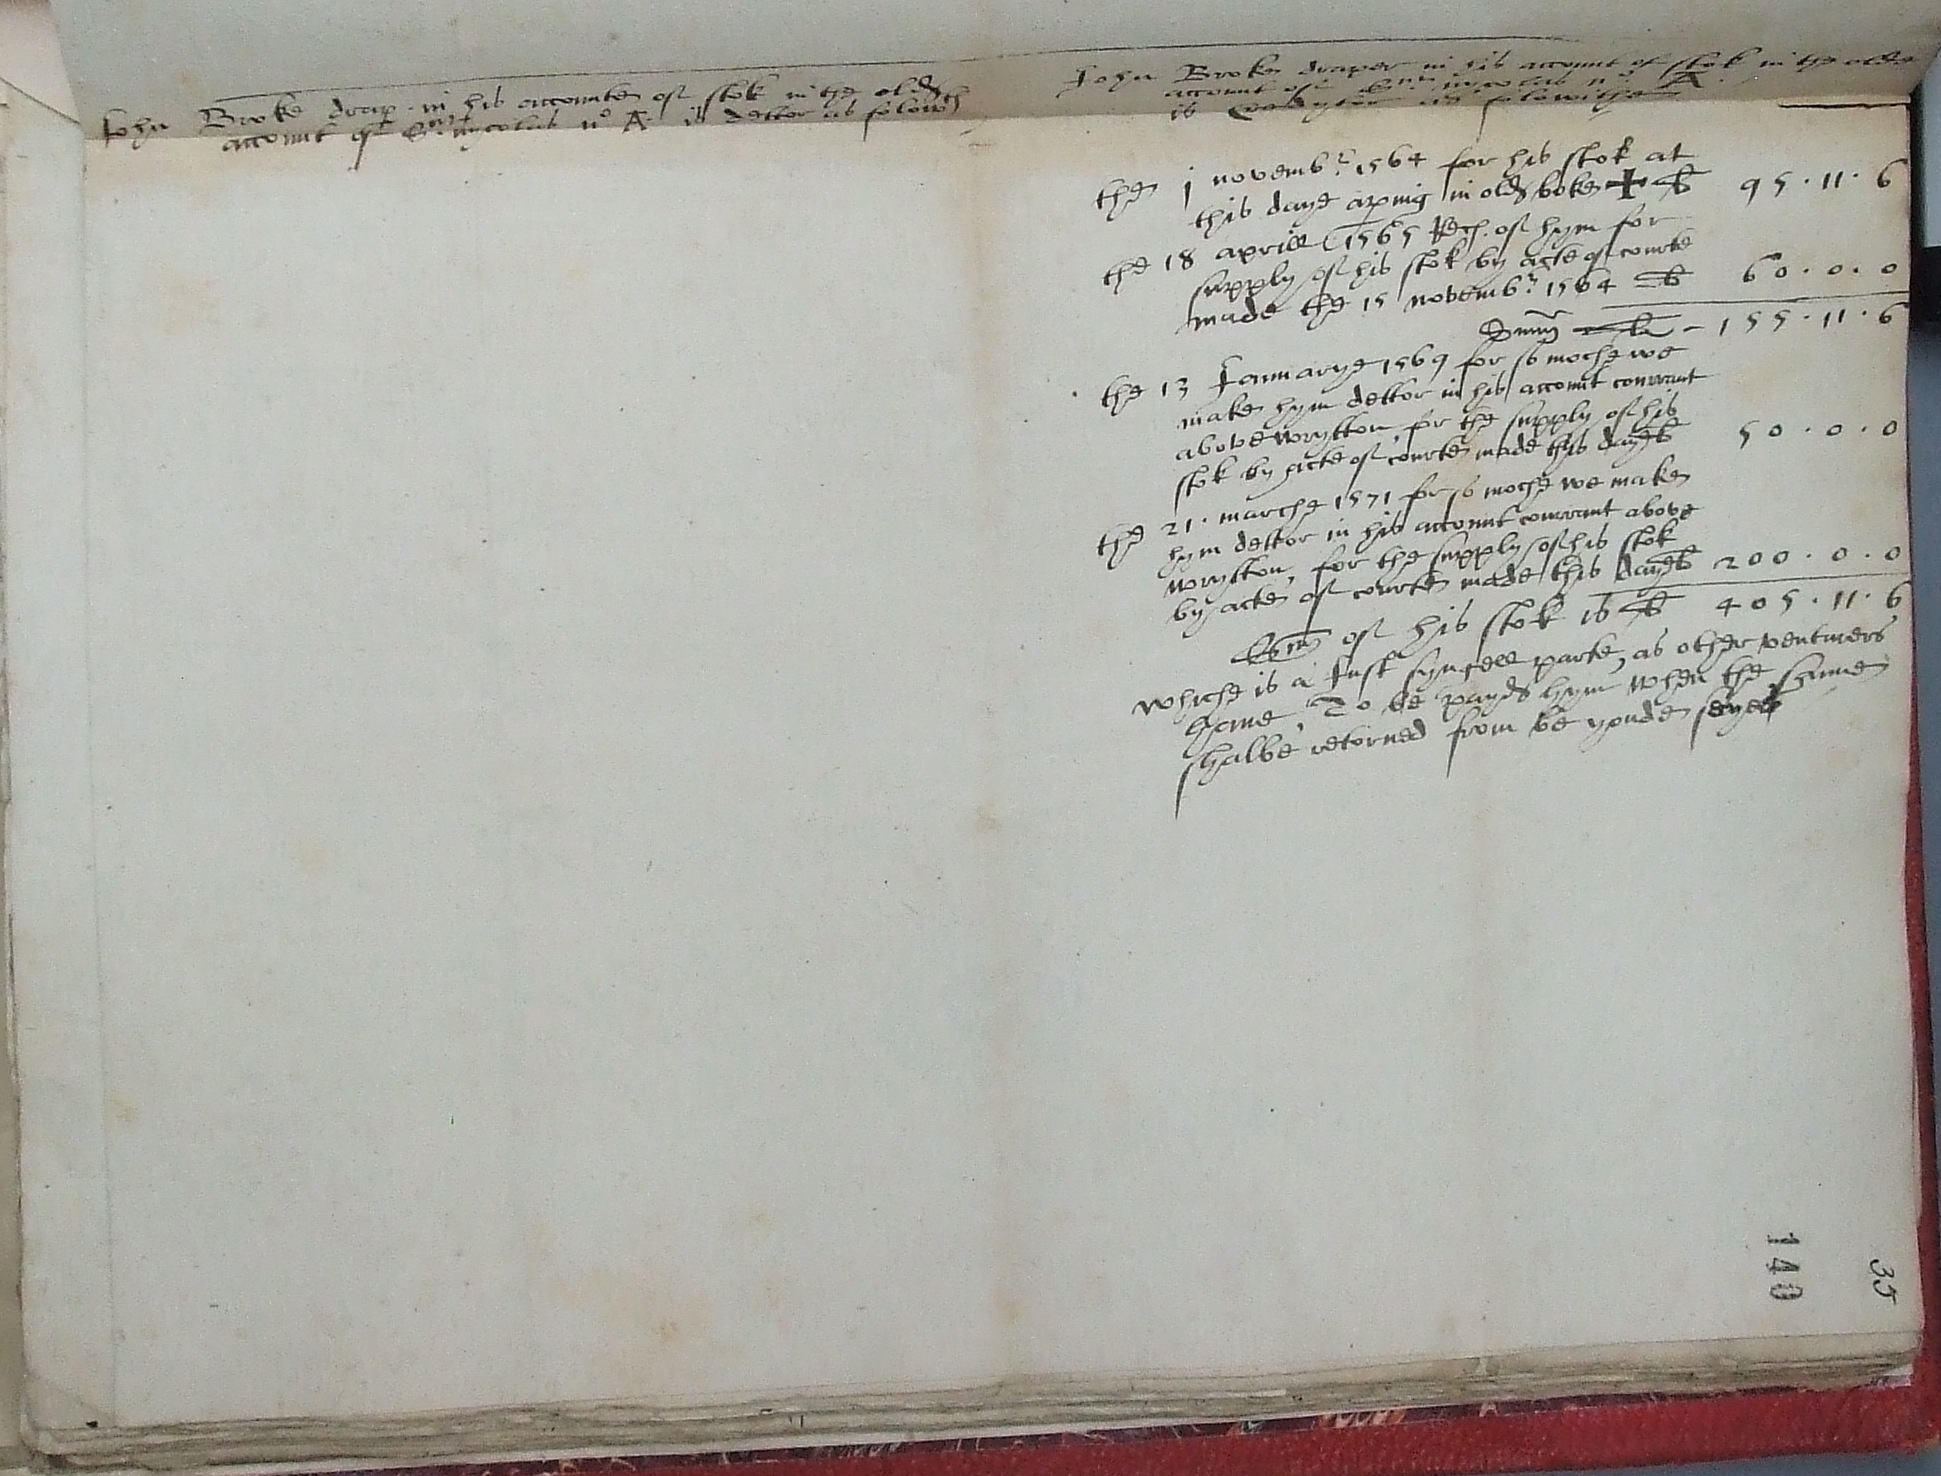 John Broke drap. in his accompte of stok in the olde
account of Sanct nycolas n° A is dettor as foloweth
John Broke draper in his account of stok in the olde
account of Sanct nycolas n° A
is Credytor as folowithe
the j novembr 1564 for his stok at
this daye aping in olde boke ✠ £ 95 . 11 . 6
the 18 aprill 1565 Rec. of hym for
supply of his stok by acte of courte
made the 15 novembr 1564 £ 60 . 0 . 0
Summ £ - 155 . 11 . 6
the 13 Januarye 1569 for so moche we
make hym dettor in his account currant
above wrytton for the supply of his
stok by acte of courte made this daye £ 50 . 0 . 0
the 21 . marche 1571 for so moche we make
hym dettor in his account currant above
wrytton, for the supply of his stok
by acte of courte made this daye £ 200 . 0 . 0
Som of his stok is £ 405 . 11 . 6
whiche is a Just syngell parte, as other ventures
have, To be payde hym when the same
shalbe retorned from be yonde seyes
140
35